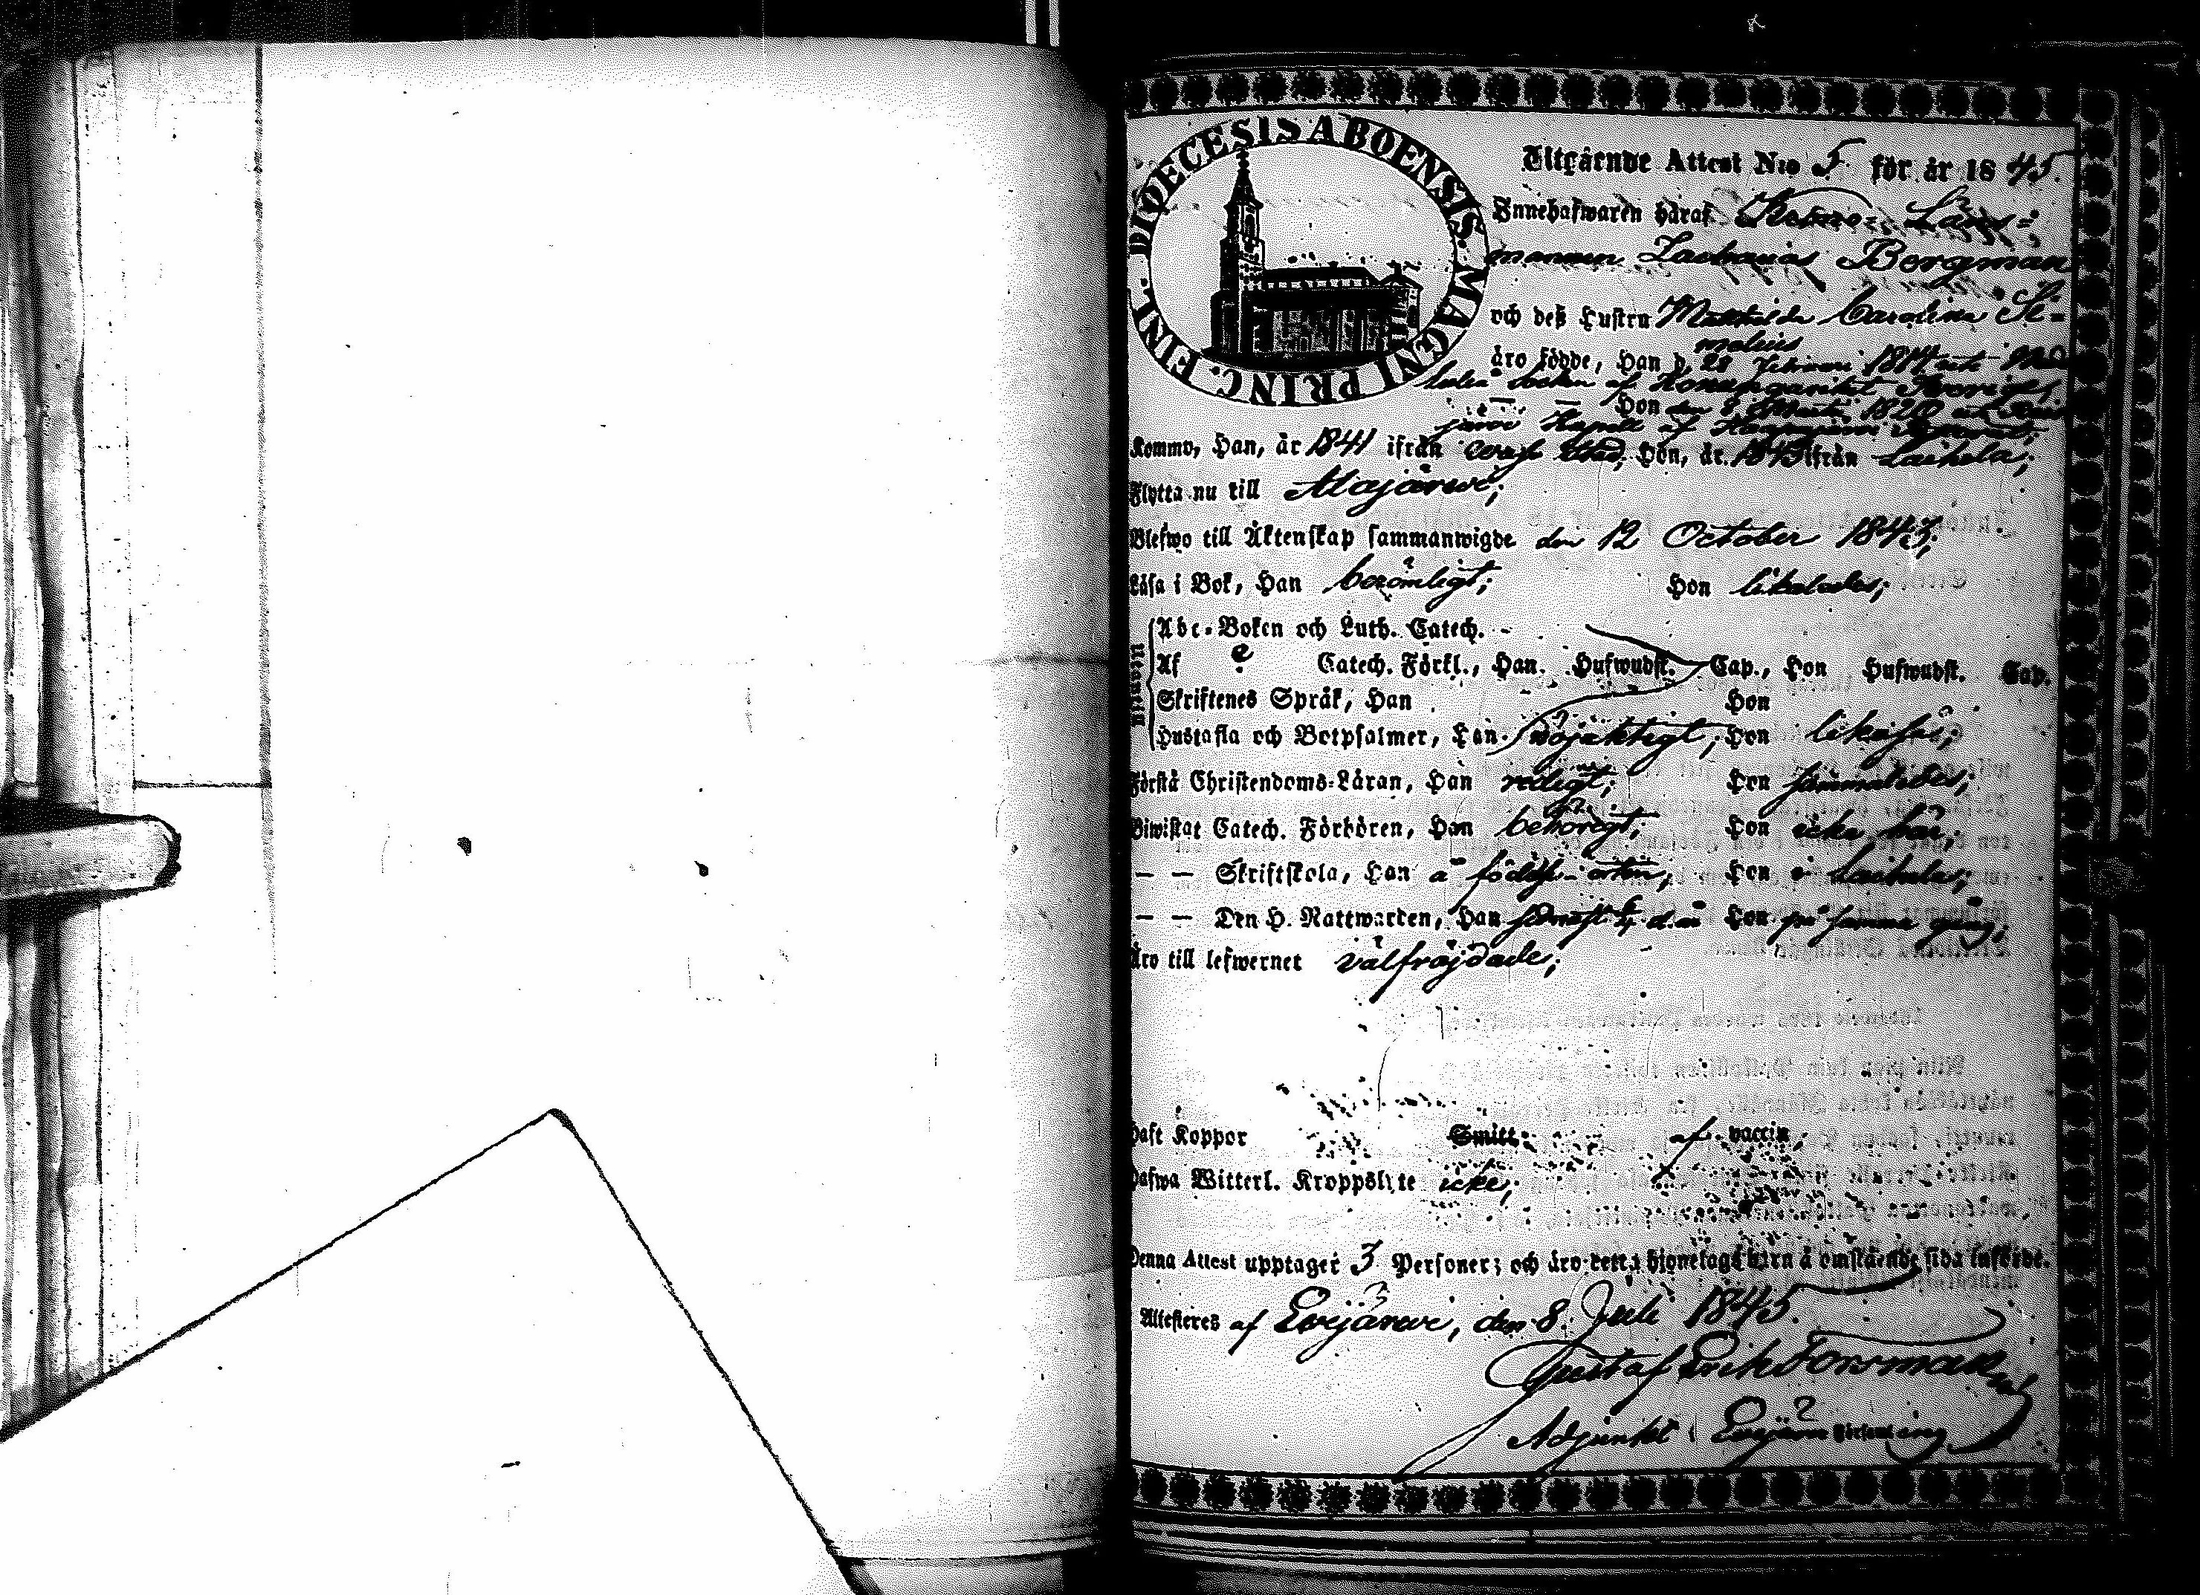 DIOECESIS ABOENSIS. MAGNI PRINC. FINL.
Utgående Attest N:o 5 för år 1845.
Innehafwaren häraf, Krono-Läns=
mannen Zacharias Bergman
och deß Hustru Mathilda Carolina Si=
melius
äro födde, Han d. 28 Februari 1814 uti
luleå socken af Konungariket Sverige;
— — Hon den 8 Martii 1820 uti
järvi Kapell af
Kommo, Han, år 1841 ifrån stad; Hon, år 1843 ifrån Laihela;
Flytta nu till Alajärwi;
Blefwo till Äktenskap sammanwigde den 12 October 1843;
Läsa i Bok, Han berömligt; Hon likaledes;
Utantill
Abc-Boken och Luth. Catech. -
Af e Catech. Förkl., Han Hufwudst. Cap., Hon Hufwudst. Cap.
Skriftenes Språk, Han Hon
Hustafla och Botpsalmer, Han nöjaktigt; Hon likaså;
Förstå Christendoms-Läran, Han redigt; Hon sammaledes;
Biwistat Catech. Förhören, Han behörigt; Hon icke här;
— — Skriftskola, Han å födelse-orten; Hon i Laihela;
— — Den H. Nattwarden, Han d. å. Hon på samma gång;
Äro till lefwernet välfräjdade;
Haft Koppor Smitt. af vaccin;
Hafwa Witterl. Kroppslyte icke;
Denna Attest upptager 3 Personer; och äro detta hjonelags barn å omstående sida införde.
Attesteres af Evijärwi, den 8 Juli 1845.
Gustaf Erik Forsman
Adjunkt i Evijärvi Församling